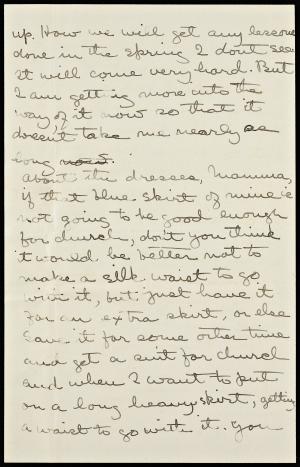 up. How we will get any lessons
done in the spring I don't see
it will come very hard. But
I am getting more into the
way of it now so that it
doesn't take me nearly as
long now.
About the dresses, Mamma,
if that blue skirt of mine is
not going to be good enough
for church, don't you think
it would be better not to
make a silk waist to go
with it, but just have it
for an extra skirt, or else
save it for some other time
and get a suit for church
and when I want to put
on a long heavy skirt, getting
a waist to go with it. You